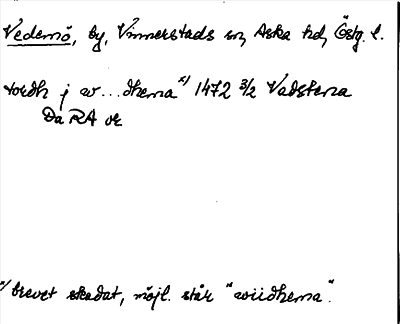 Vedemö, by, Vinnerstads sn, Aska hd, Östg. l.
tordh j w...dhema x) 1472 3/2 Vadstena
Da RA or
x) brevet skadat, möjl. står "wiidhema".